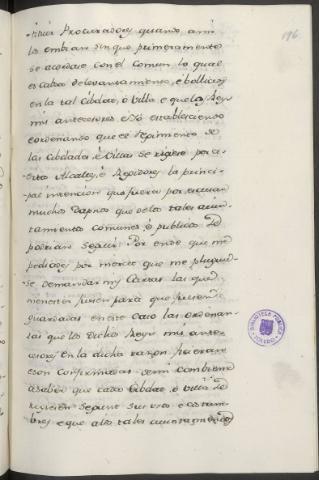 196
tituir Procuradores quando ami
los embian sin que primeramente
se acordase con el comun lo qual
es cabsa de levantamiento, è bollicios
en la tal Cibdat, o Villa e que los Reys
mis antecesores e Yò estableciendo
e ordenando que el regimiento de
las Cibdades, è Villas se rigiese por ci-
ertos Alcaldes, è Regidores la princi-
pal intencion que fuera por escusar
muchos dapnos que de los tales aiun-
tamientos comunes, è publicos se
podrian seguir. Por ende que me
pediades por merced que me pluguie-
se demandar mis Cartas las que
menester fuesen para que fuesen
guardadas en este caso las ordenan-
zas que los dichos Reys mis ante-
cesores en la dicha razon ficieran
e son confirmadas de mi combiene
a saber que cada Cibdat, o Villa se
rixiesen segunt sus usos e costum-
bres e que alos tales aiuntamientos
BIBLIOTECA PUBLICA
TOLEDO